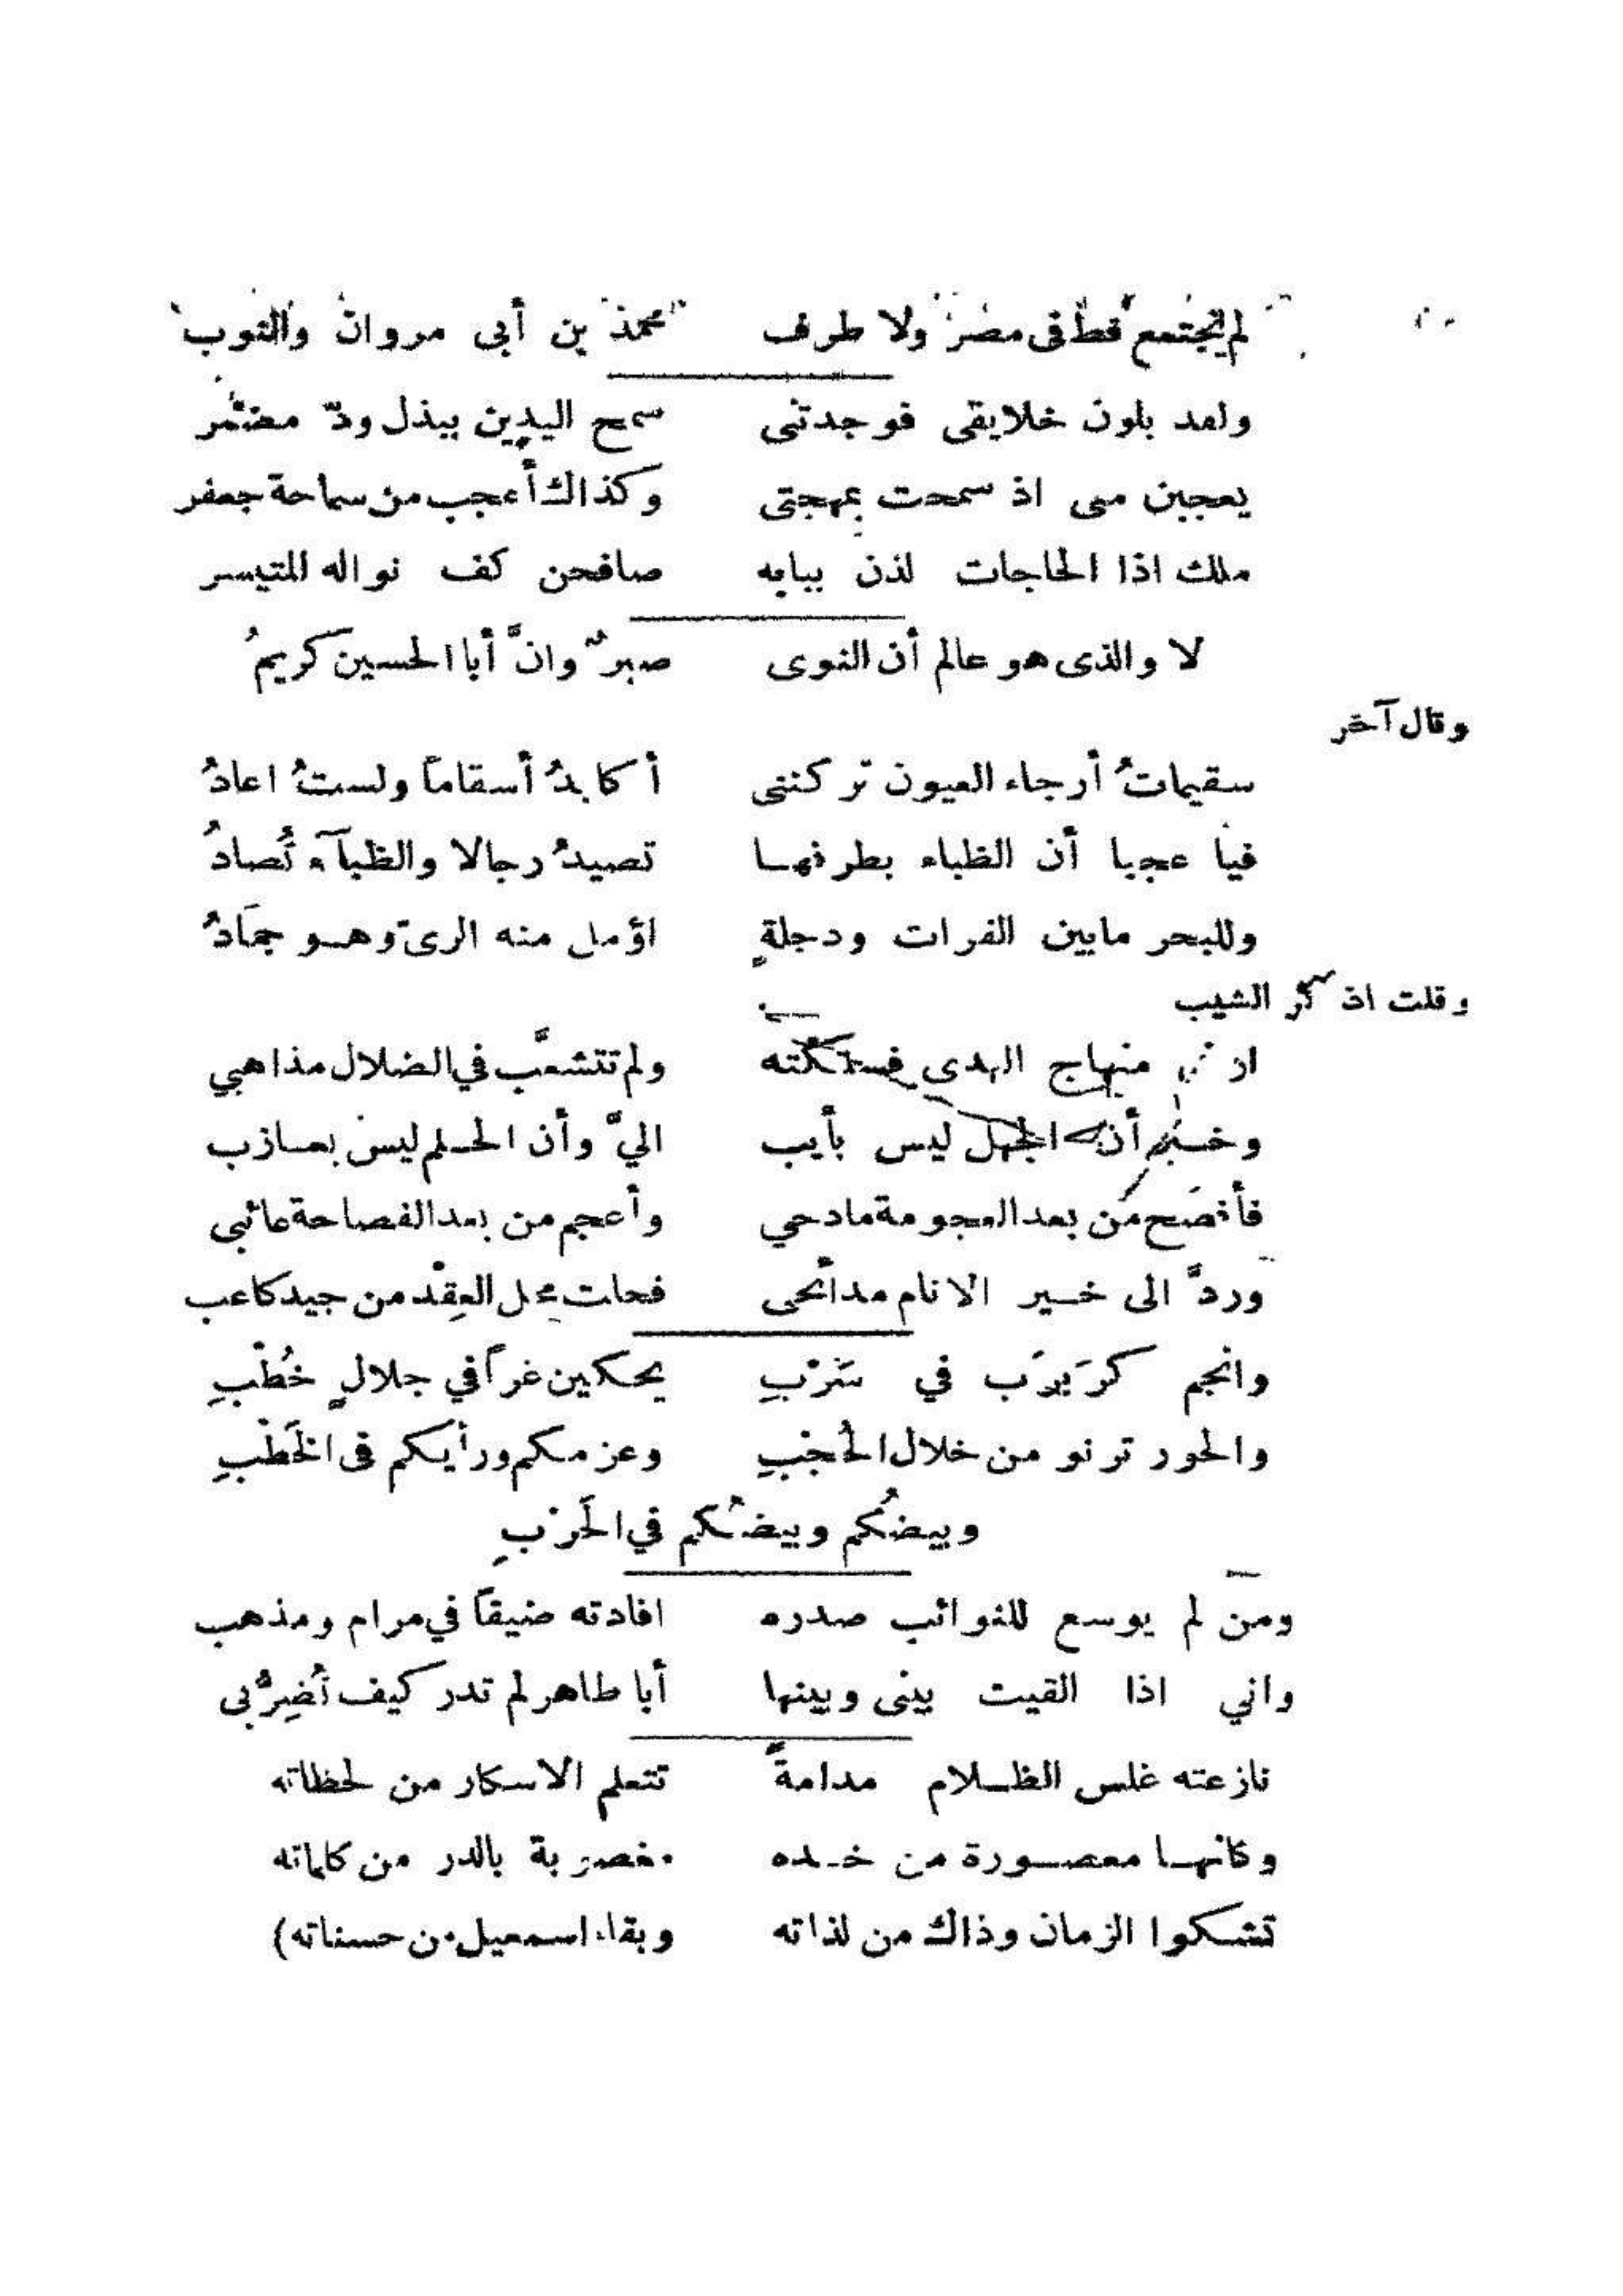 لم يجتمع قط في مصر ولا طرف محمد بن أبى مروان والنوب
ولقد بلون خلايقى فوجدتنى سمح اليدين ببذل ودّ مضمر
يعجبن منى اذ سمحت بمهجتى وكذاك أعجب من سماحة جعفر
ملك اذا الحاجات لذن ببابه صافحن كف نواله المتيسر
لا والذى هو عالم أن النوى صبرٌ وانَّ أبا الحسين كريمُ
وقال آخر
سقيماتُ أرجاء العيون تركننى أكابدُ أسقاماً ولستُ اعادُ
فيا عجبا أن الظباء بطرفهـا تصيدُ رجالا والظبآء تُصادُ
وللبحر مابين الفرات ودجلةٍ اؤمل منه الرىّ وهـو جمَادُ
وقلت اذكر الشيب
منهاج الهدى فسلكته ولم تتشعَّب في الضلال مذاهبي
أن الجهل ليس بأيب اليَّ وأن الحـلم ليس بعـازب
فأفصَح من بعد العجومة مادحي وأعجم من بعد الفصاحة عائبى
وردَّ الى خـير الانام مدائحى فحلت محل العِقْد من جيد كاعب
وانجم كرَبرَب في سَرْبِ يحكين غراً في جلالٍ خُطْبِ
والحور ترنو من خلال الحُجْبِ وعزمكم ورأيكم فى الخَطْبِ
وبيضُكم وبيضُكم في الحَرْبِ
ومن لم يوسع للنوائب صدره افادته ضيقاً في مرام ومذهب
واني اذا القيت بينى وبينها أبا طاهر لم تدر كيف تُضِرُّبى
نازعته غلس الظـلام مدامةً تتعلم الاسكار من لحظاته
وكانهـا معصـورة من خـده بالدر من كلماته
تشكوا الزمان وذاك من لذاته وبقاء اسمعيل من حسناته)